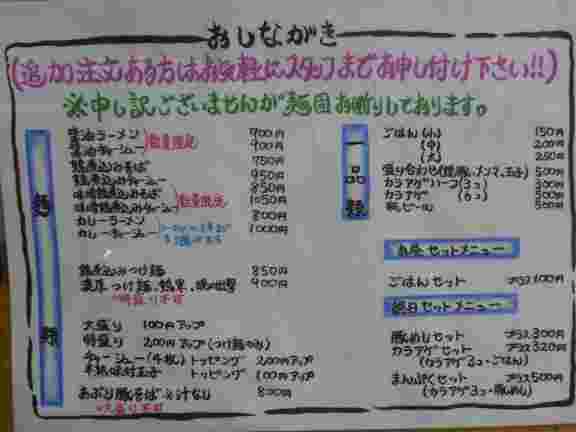 おしながき
(追加注文ある方はお気軽にスタッフまでお申し付け下さい!!)
※申し訳ございませんが麺固お断りしております。
麺類
醤油ラーメン 900円
醤油チャーシュー 900円
数量限定
鶏煮込みそば 750円
鶏煮込みチャーシュー 950円
味噌鶏煮込みそば 850円
味噌鶏煮込みチャーシュー 1050円
数量限定
カレーラーメン 800円
カレーチャーシュー 1000円
鶏煮込みつけ麺 850円
濃厚つけ麺 900円
※特盛り不可
大盛り 100円アップ
特盛り 200円アップ(つけ麺のみ)
チャーシュー(4枚)トッピング 200円アップ
半熟味付玉子 トッピング 100円アップ
あぶり豚そば※汁なし 800円
※大盛り不可
一品類
ごはん(小) 150円
(中) 200円
(大) 250円
盛り合わせ(豚、メンマ、玉子) 500円
カラアゲハーフ(3コ) 300円
カラアゲ(6コ) 500円
瓶ビール 500円
お昼セットメニュー
ごはんセット プラス100円
終日セットメニュー
豚めしセット プラス300円
カラアゲセット プラス320円
(カラアゲ3コ・ごはん)
まんぷくセット プラス500円
(カラアゲ3コ・豚めし)